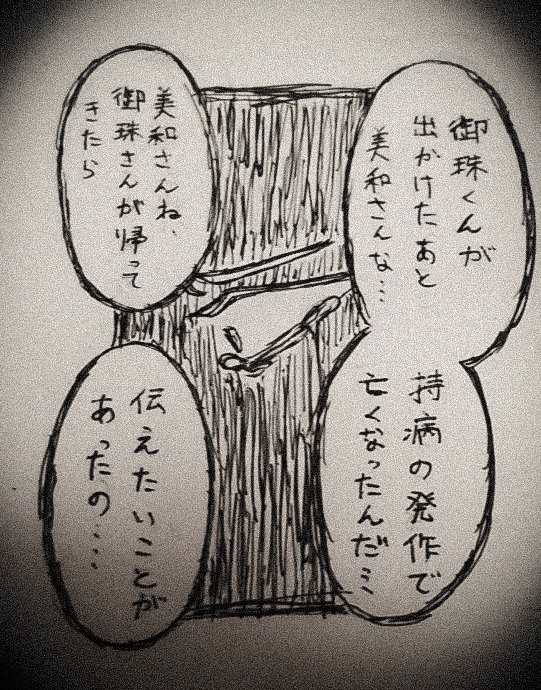 御珠くんが
出かけたあと
美和さんな…
持病の発作で
亡くなったんだ…
美和さんね、
御珠さんが帰って
きたら
伝えたいことが
あったの‥‥